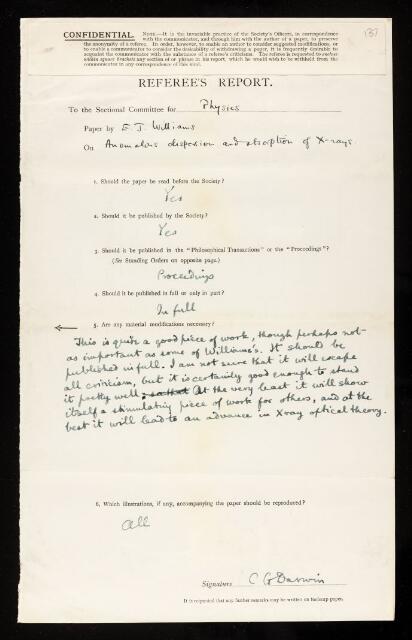 (3)
CONFIDENTIAL. NOTE.—It is the invariable practice of the Society's Officers, in correspondence
with the communicator, and through him with the author of a paper, to preserve
the anonymity of a referee. In order, however, to enable an author to consider suggested modifications, or
to enable a communicator to consider the desirability of withdrawing a paper, it is frequently desirable to
acquaint the communicator with the substance of a referee's criticisms. The referee is requested to enclose
within square brackets any section of or phrase in his report, which he would wish to be withheld from the
communicator in any correspondence of this kind.
REFEREE'S REPORT.
To the Sectional Committee for Physics
Paper by E. J. Williams
On Anomalous dispersion and absorption of X-rays.
1. Should the paper be read before the Society?
Yes
2. Should it be published by the Society?
Yes
3. Should it be published in the "Philosophical Transactions" or the "Proceedings"?
(See Standing Orders on opposite page.)
Proceedings
4. Should it be published in full or only in part?
In full
5. Are any material modifications necessary?
This is quite a good piece of work, though perhaps not
as important as some of Williams's. It should be
published in full. I am not sure that it will escape
all criticism, but it is certainly good enough to stand
it pretty well At the very least it will show
itself a stimulating piece of work for others, and at the
best it will lead to an advance in Xray optical theory.
6. Which illustrations, if any, accompanying the paper should be reproduced?
All
Signature C G Darwin
It is requested that any further remarks may be written on foolscap paper.